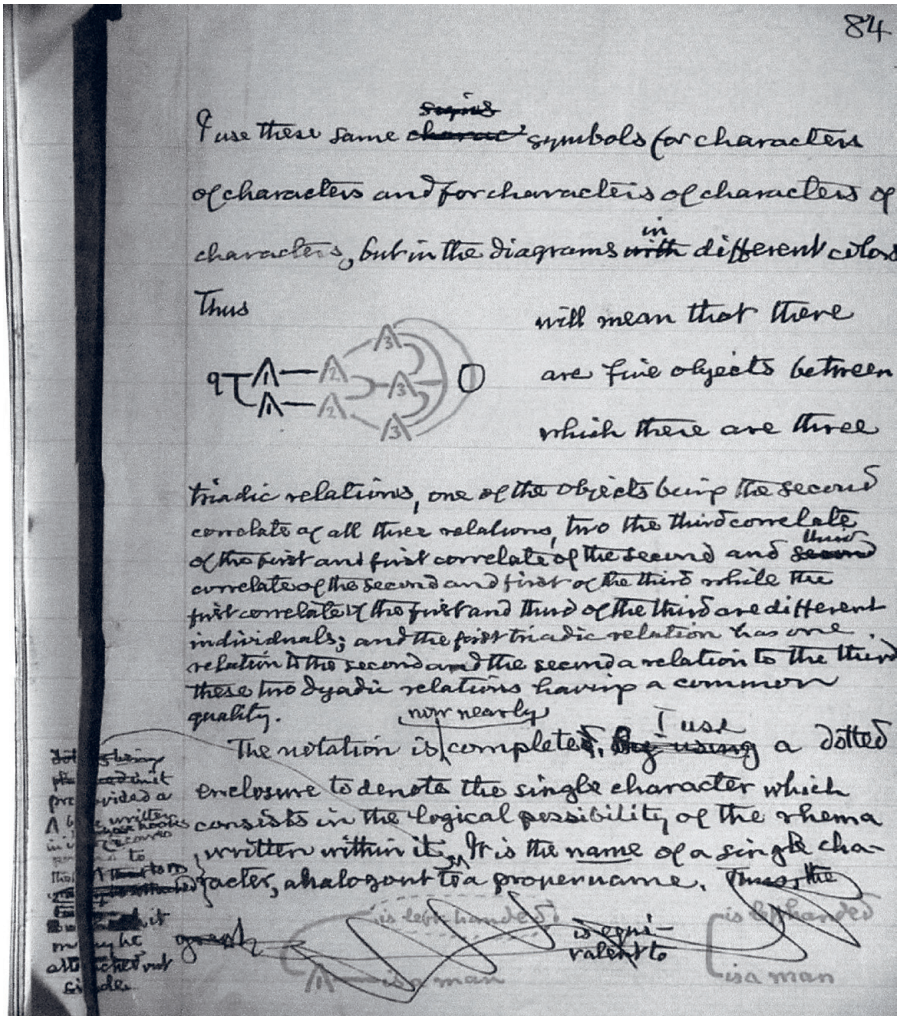 84
signs
I use these same charac symbols for characters
of characters and for characters of characters of
in
characters, but in the diagrams with different colors
Thus
will mean that there
are five objects between
which there are three
q 1 2 3
1 2 3
3
triadic relations, one of the objects being the second
correlate of all three relations, two the third correlate
third
of the first and first correlate of the second and second
correlate of the second and first of the third while the
first correlate of the first and third of the third are different
individuals; and the first triadic relation has one
relation to the second and the second a relation to the third
these two dyadic relations having a common
quality.
now nearly I use
The notation is complete. By using a dotted
enclosure to denote the single character which
consists in the logical possibility of the rhema
written within it. It is the name of a single cha-
racter, analogous to a proper name. Thus the
graph
is left handed
is a man
is equi-
valent to
is left handed
is a man
being
provided a
be written
to
it
may be
attached